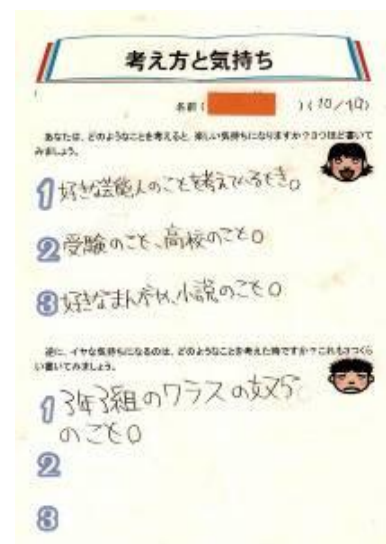 考え方と気持ち
名前( )(10/19)
あなたは、どのようなことを考えると、楽しい気持ちになりますか?3つほど書いて
みましょう。
1 好きな芸能人のことを考えているとき。
2 受験のこと、高校のこと。
3 好きなまんがや、小説のこと。
逆に、イヤな気持ちになるのは、どのようなことを考えた時ですか?これも3つくら
い書いてみましょう。
1 3年3組のクラスの奴ら
のこと。
2
3